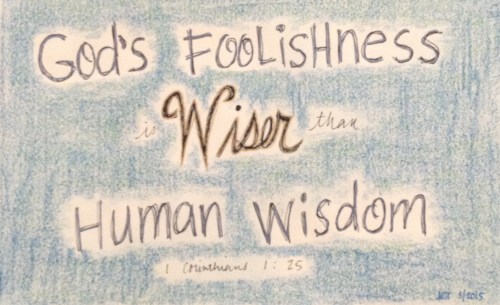 God's FOOLisHness
is Wiser than
Human Wisdom
1 Corinthians 1:25